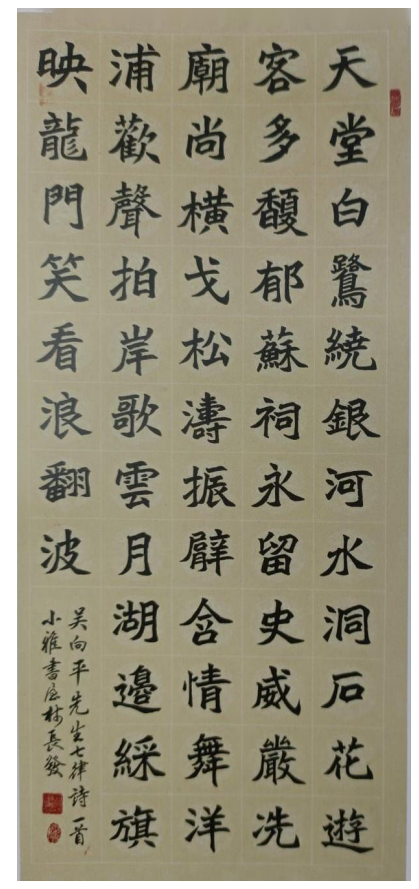 天堂白鷺繞銀河水洞石花遊
客多馥郁蘇祠永留史威嚴冼
廟尚橫戈松濤振臂含情舞洋
浦歡聲拍岸歌雲月湖邊綵旗
映龍門笑看浪翻波
吳向平先生七律詩一首
小雅書屋林長發